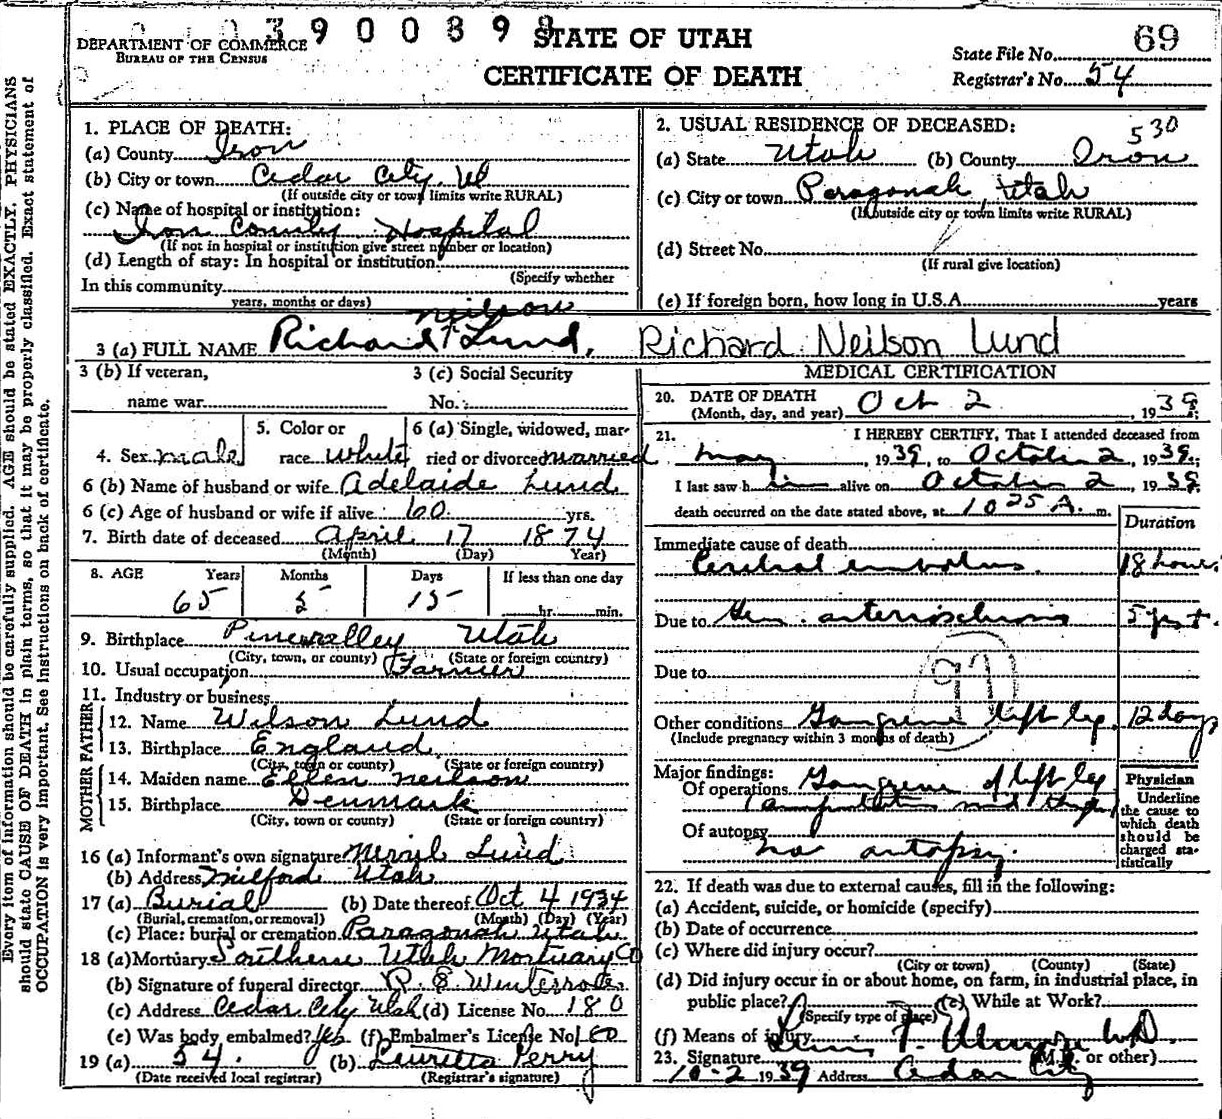 3900899
DEPARTMENT OF COMMERCE
BUREAU OF THE CENSUS
STATE OF UTAH
CERTIFICATE OF DEATH
69
State File No.
Registrar's No. 54
Every item of information should be carefully supplied. AGE should be stated EXACTLY. PHYSICIANS
should state CAUSE OF DEATH in plain terms, so that it may be properly classified. Exact statement of
OCCUPATION is very important. See instructions on back of certificate.
1. PLACE OF DEATH:
(a) County Iron
(b) City or town Cedar City, Ut
(If outside city or town limits write RURAL)
(c) Name of hospital or institution:
Iron County Hospital
(If not in hospital or institution give street number or location)
(d) Length of stay: In hospital or institution
(Specify whether
In this community
years, months or days)
2. USUAL RESIDENCE OF DECEASED:
530
(a) State Utah (b) County Iron
(c) City or town Paragonah, Utah
(If outside city or town limits write RURAL)
(d) Street No.
(If rural give location)
(e) If foreign born, how long in U.S.A. years
Neilson
3 (a) FULL NAME Richard Lund, Richard Neilson Lund
3 (b) If veteran,
name war
3 (c) Social Security
No.
4. Sex male
5. Color or
race White
6 (a) Single, widowed, mar-
ried or divorced married
6 (b) Name of husband or wife Adelaide Lund
6 (c) Age of husband or wife if alive 60 yrs.
7. Birth date of deceased April 17 1874
(Month) (Day) Year)
8. AGE Years Months Days If less than one day
65 5 15 hr. min.
9. Birthplace Pinevalley Utah
(City, town, or county) (State or foreign country)
10. Usual occupation Farmer
11. Industry or business
FATHER
12. Name Wilson Lund
13. Birthplace England
(City, town or county) (State or foreign country)
MOTHER
14. Maiden name Ellen Neilson
15. Birthplace Denmark
(City, town or county) (State or foreign country)
16 (a) Informant's own signature Lund
(b) Address Milford Utah
17 (a) Burial (b) Date thereof Oct 4 1934
(Burial, cremation, or removal) (Month) (Day) (Year)
(c) Place: burial or cremation Paragonah Utah
18 (a) Mortuary Southern Utah Mortuary Co
(b) Signature of funeral director R. E. Winterrose
(c) Address Cedar City Utah (d) License No. 180
(e) Was body embalmed? Yes (f) Embalmer's License No.
19 (a) 54. (b) Lauretta Perry
(Date received local registrar) (Registrar's signature)
MEDICAL CERTIFICATION
20. DATE OF DEATH
(Month, day, and year) Oct 2, 1939
21. I HEREBY CERTIFY, That I attended deceased from
May, 1939, to October 2, 1939;
I last saw him alive on October 2, 1939
death occurred on the date stated above, at 1025 A. m.
Duration
Immediate cause of death
Cerebral embolus. 18 hours.
Due to Gen. arteriosclerosis 5 yrs +.
97
Due to
Other conditions Gangrene left leg. 12 days
(Include pregnancy within 3 months of death)
Major findings:
Of operations Gangrene of left leg
amputation mid thigh
Of autopsy
no autopsy.
Physician
Underline
the cause to
which death
should be
charged sta-
tistically
22. If death was due to external causes, fill in the following:
(a) Accident, suicide, or homicide (specify)
(b) Date of occurrence
(c) Where did injury occur?
(City or town) (County) (State)
(d) Did injury occur in or about home, on farm, in industrial place, in
public place? (e) While at Work?
(Specify type of place)
(f) Means of injury
23. Signature M.D. (M.D. or other)
10-2 1939 Address Cedar City